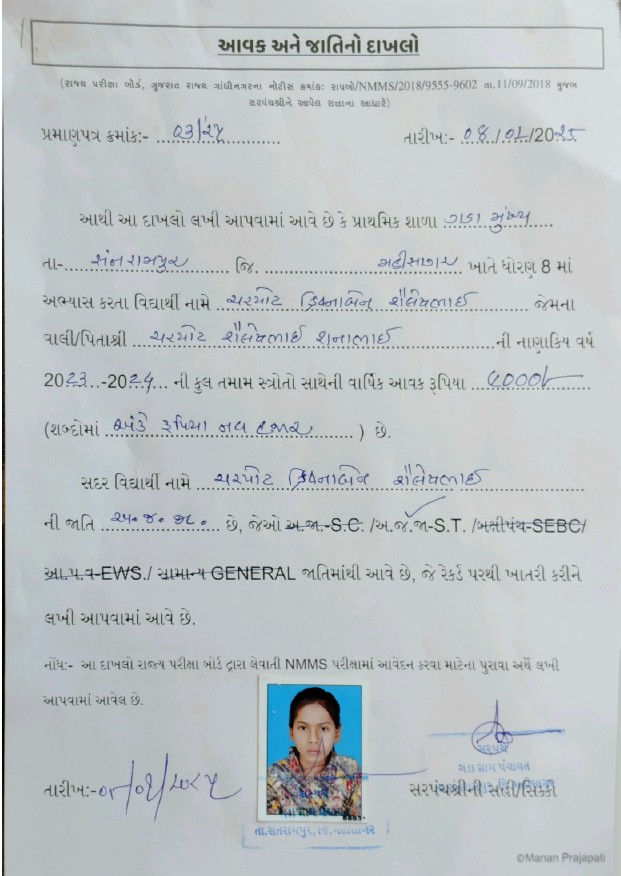 આવક અને જાતિનો દાખલો
(રાજ્ય પરીક્ષા બોર્ડ, ગુજરાત રાજ્ય ગાંધીનગરના નોટીસ ક્રમાંક: રાપબો/NMMS/2018/9555-9602 તા.11/09/2018 મુજબ
સરપંચશ્રીને આપેલ સત્તાના આધારે)
પ્રમાણપત્ર ક્રમાંક:- ૦૩/૨૫ તારીખ:- ૦૪/૦૧/2૦૨૫
આથી આ દાખલો લખી આપવામાં આવે છે કે પ્રાથમિક શાળા ગડા મુખ્ય
તા- સંતરામપુર જિ. મહીસાગર ખાતે ધોરણ 8 માં
અભ્યાસ કરતા વિદ્યાર્થી નામે ચરપોટ ક્રિષ્નાબેન શૈલેષભાઈ જેમના
વાલી/પિતાશ્રી ચરપોટ શૈલેષભાઈ શનાભાઈ ની નાણાકિય વર્ષ
20૨૩-20૨૪ ની કુલ તમામ સ્ત્રોતો સાથેની વાર્ષિક આવક રૂપિયા
(શબ્દોમાં અંકે રૂપિયા હજાર ) છે.
સદર વિદ્યાર્થી નામે ચરપોટ ક્રિષ્નાબેન શૈલેષભાઈ
ની જાતિ છે, જેઓ અ.જા.-S.C. /અ.જ.જા-S.T. /બક્ષીપંચ-SEBC/
આ.પ.વ-EWS./ સામાન્ય GENERAL જાતિમાંથી આવે છે, જે રેકર્ડ પરથી ખાતરી કરીને
લખી આપવામાં આવે છે.
નોંધ:- આ દાખલો રાજ્ય પરીક્ષા બોર્ડ દ્વારા લેવાતી NMMS પરીક્ષામાં આવેદન કરવા માટેના પુરાવા અર્થે લખી
આપવામાં આવેલ છે.
સરપંચ
ગડા ગ્રામ પંચાયત
તારીખ:- સરપંચશ્રીની સહી/સિક્કો
તા.સંતરામપુર, જિ.મહીસાગર
©Manan Prajapati